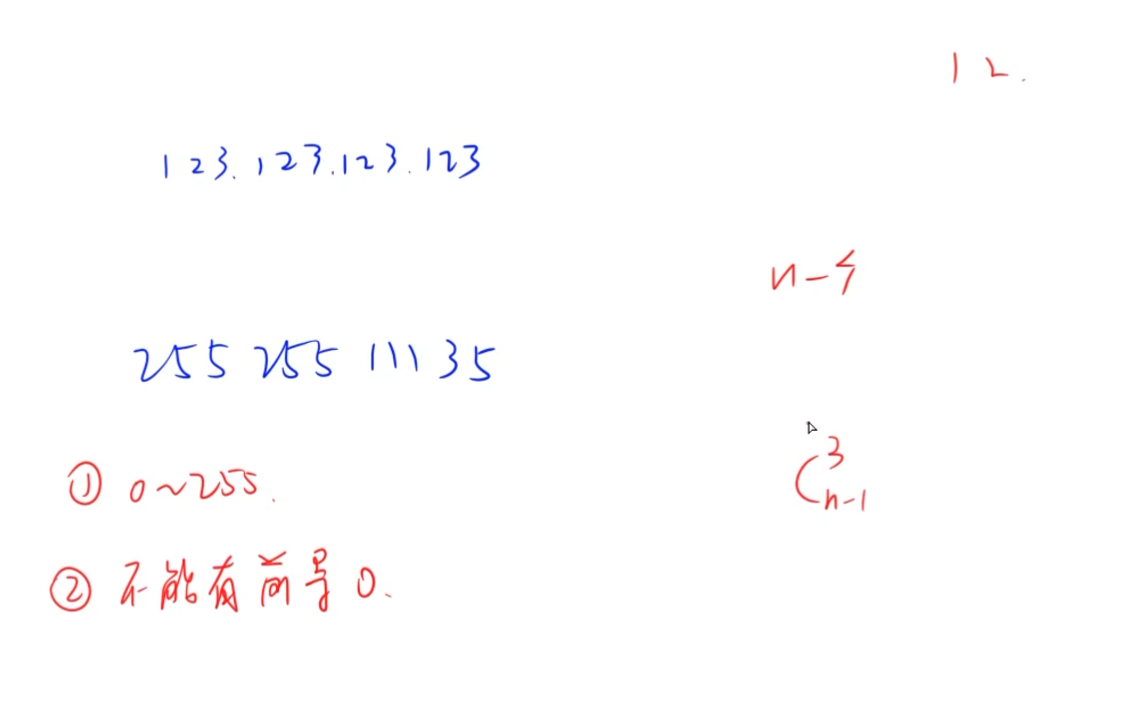 12.
123.123.123.123
n-4
255 255 111 35
① 0~255.
C³ₙ₋₁
② 不能有前导0.